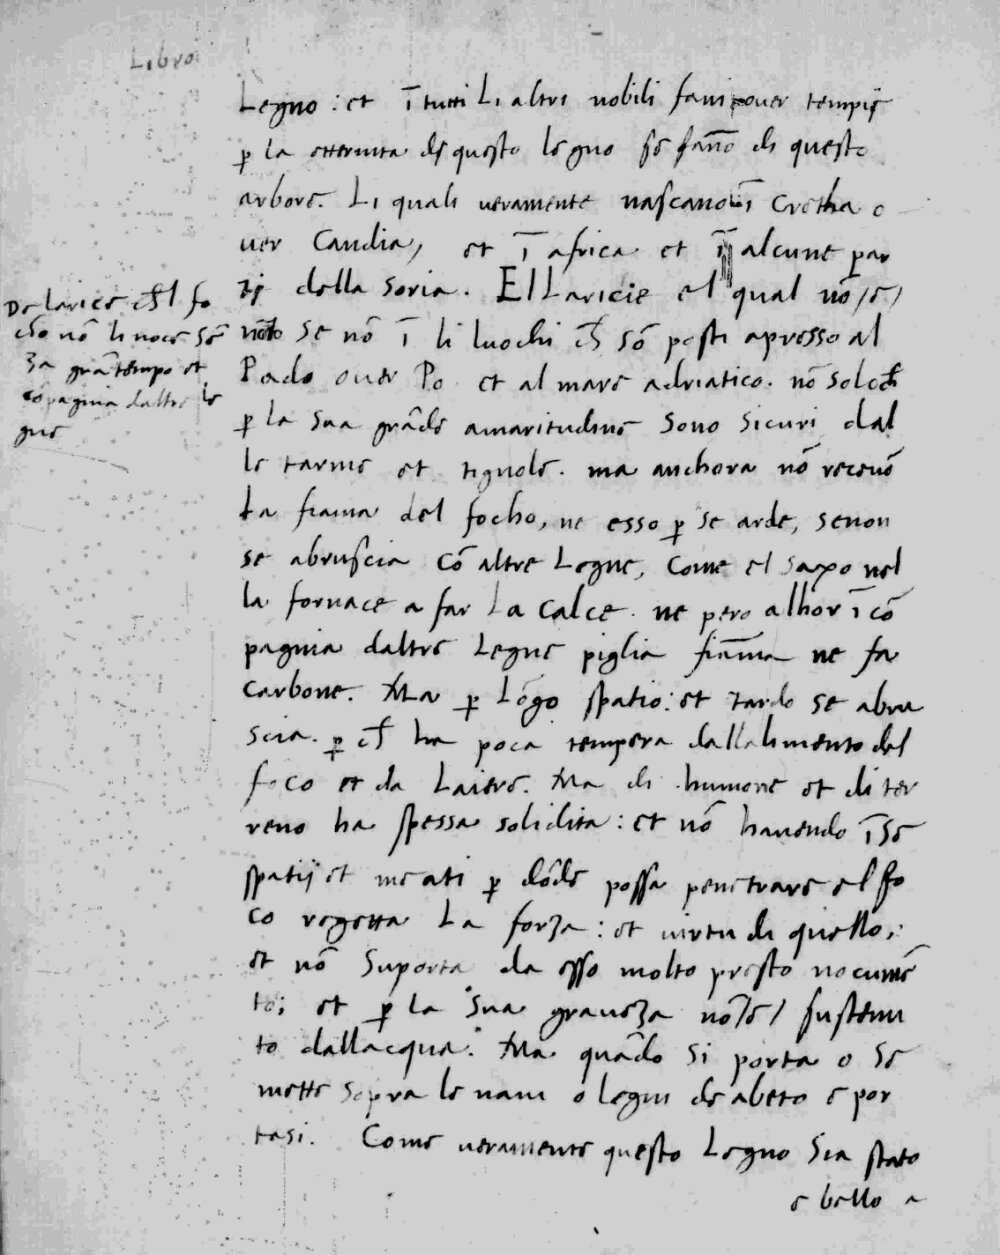 Libro
Legno : et ī tutti Li altri nobili fani over tempij
ꝑ la etternita de questo legno se fāno di questo
arbore. Li quali veramente nascano ī Cretha o
ver Candia, et ī africa et ī alcune par
zi della Soria. El Laricie el qual nō /e/
noto se nō ī li luochi ch̄ sō posti apresso al
Pado over Po et al mare adriatico. nō solo ch̄
ꝑ la sua grāde amaritudine sono sicuri dal
le tarme et tignole. ma anchora nō recevō
La fiama del focho, ne esso ꝑ se arde, senon
se abruscia cō altre Legne, come el saxo nel
la fornace a far La calce. ne pero alhor ī cō
pagnia daltre Legne piglia fiāma ne fa
carbone. Ma ꝑ Lōgo spatio : et tardo se abru
scia. ꝑ ch̄ ha poca tempera dallalimento del
foco et da Laiere. Ma di humore et di ter
reno ha spessa solidita : et nō havendo ī se
spatij et meati ꝑ dōde possa penetrare el fo
co regetta La forza : et virtu di quello ;
et nō suporta da esso molto presto nocumē
to ; et ꝑ la sua graveza no /e/ sustenu
to dallacqua. Ma quādo si porta o se
mette sopra le navi o legni de abeto e por
tasi. Come veramente questo Legno sia stato
e bello a
De larice ch̄ l fo
cho nō li noce sē
za grā tempo et
cōpagnia daltre le
gne